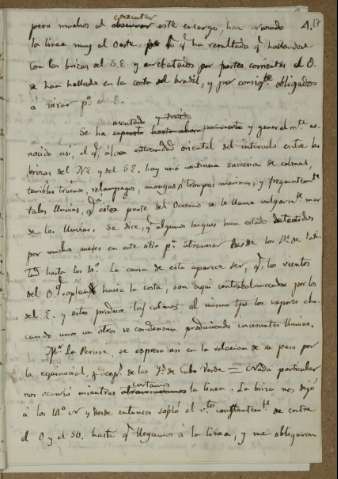 ejecutar
pero muchos al observar este encargo, han cruzado
la linea muy al Oeste, q.e ha resultado q.e hallandose
con las brisas del S.E. y arrebatados por partes corrientes al O.
se han hallado en la costa del Brasil, y por consig.te obligados
á virar p.a el E.
asentado y
Se ha supuesto hasta ahora y general m.te co-
nocido asi, el q.e al extremidad oriental del intervalo entre las
brisas del NE. y del SE. hay una continua carrera de calmas,
terribles truenos, relampagos, mangas ó trompas marinas, y frequentem.te
tales lluvias, q.e esta parte del Oceano se la llama vulgarm.te mar
de las lluvias. Se dice, q.e algunos buques han estado detenidos
por muchos meses en este sitio p.a atravesar desde los
hasta los La causa de esto aparece ser, q.e los vientos
del O. soplando hacia la costa, son aqui contrabalanceados por los
del E. y estos produce las calmas, al mismo tpo. los vapores cho-
cando unos con otros se condensan produciendo incesantes lluvias.
M.r La Perouse, se expresa asi en la relacion de su paso por
la equinocial, q.e cap. de las Y.s de Cabo Verde = Nada particular
cortamos
nos ocurrio mientras atravesamos la linea. La brisa nos dejó
á los 14° N y desde entonces sopló el v.to constantem.te de entre
el O y el SO. hasta q.e llegamos á la linea, y me obligaron